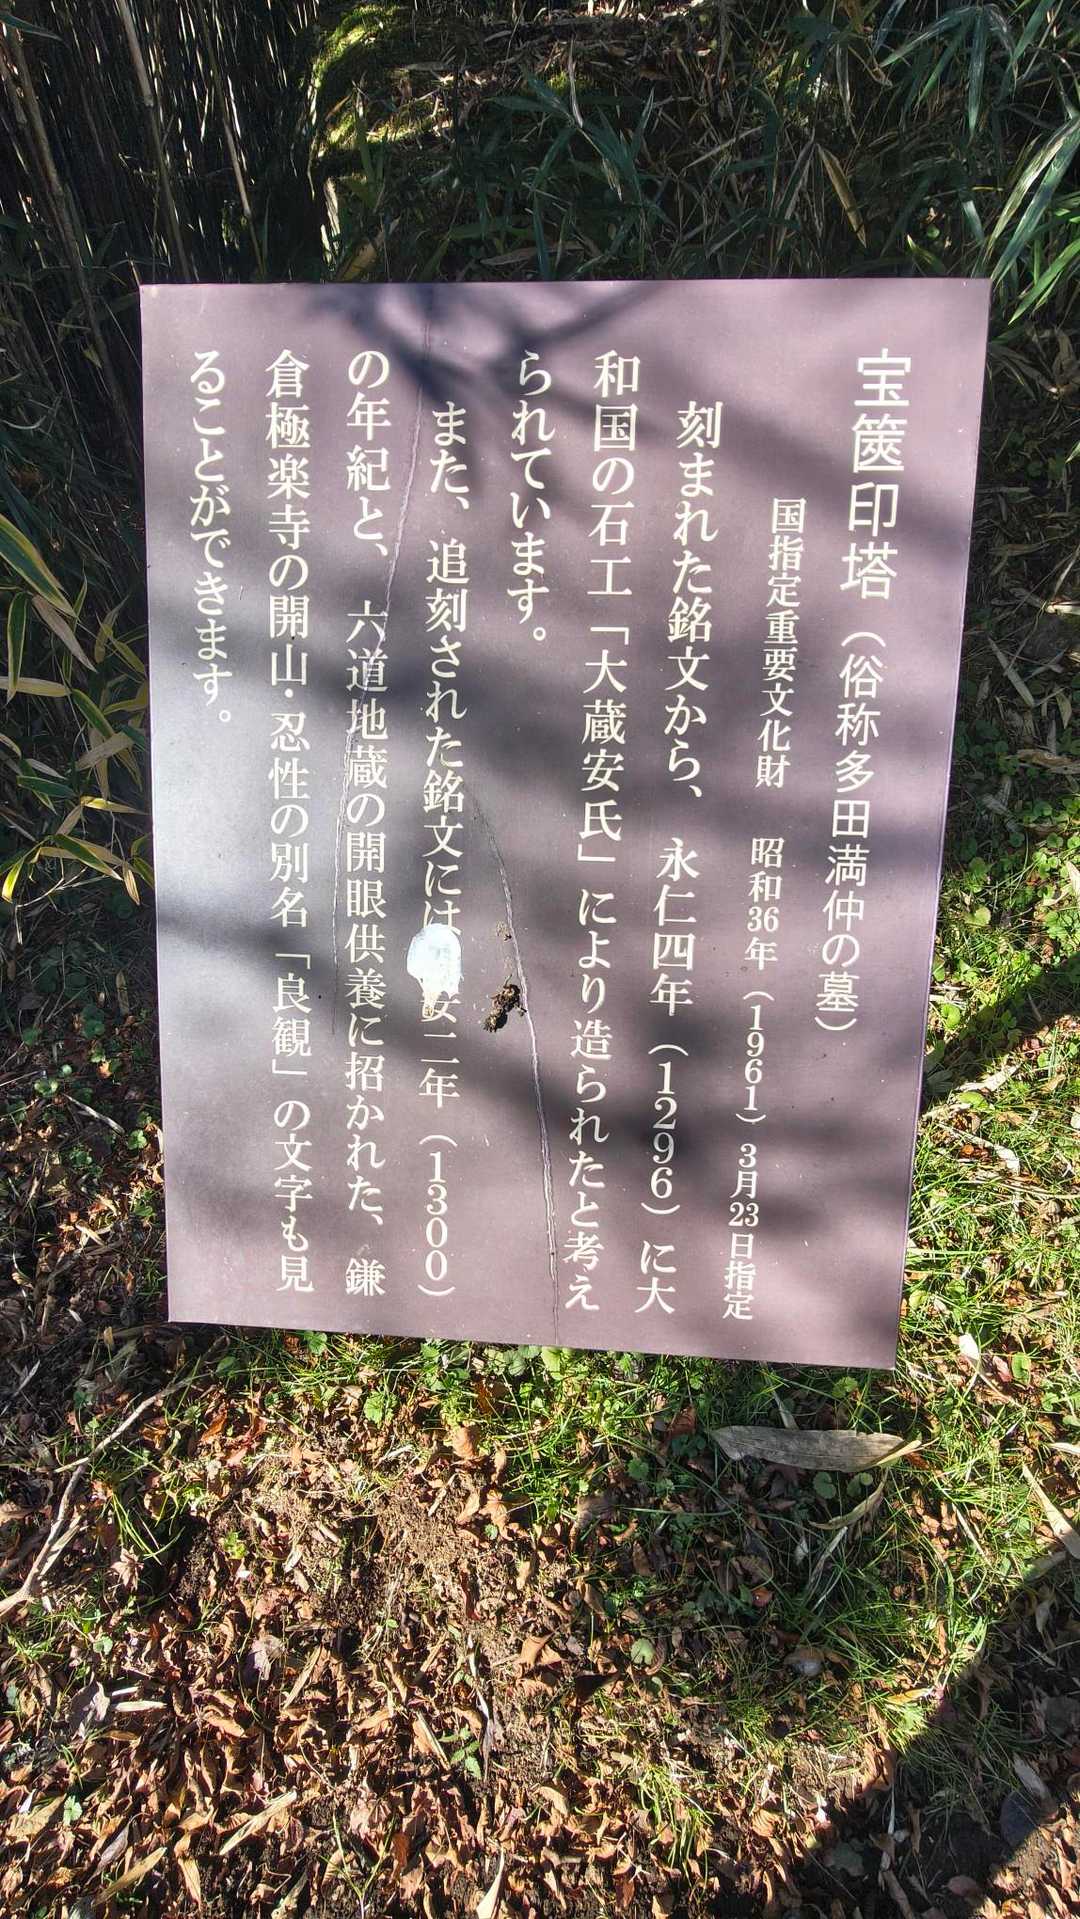 宝篋印塔（俗称多田満仲の墓）
国指定重要文化財　昭和36年（1961）3月23日指定
刻まれた銘文から、永仁四年（1296）に大
和国の石工「大蔵安氏」により造られたと考え
られています。
また、追刻された銘文には安二年（1300）
の年紀と、六道地蔵の開眼供養に招かれた、鎌
倉極楽寺の開山・忍性の別名「良観」の文字も見
ることができます。